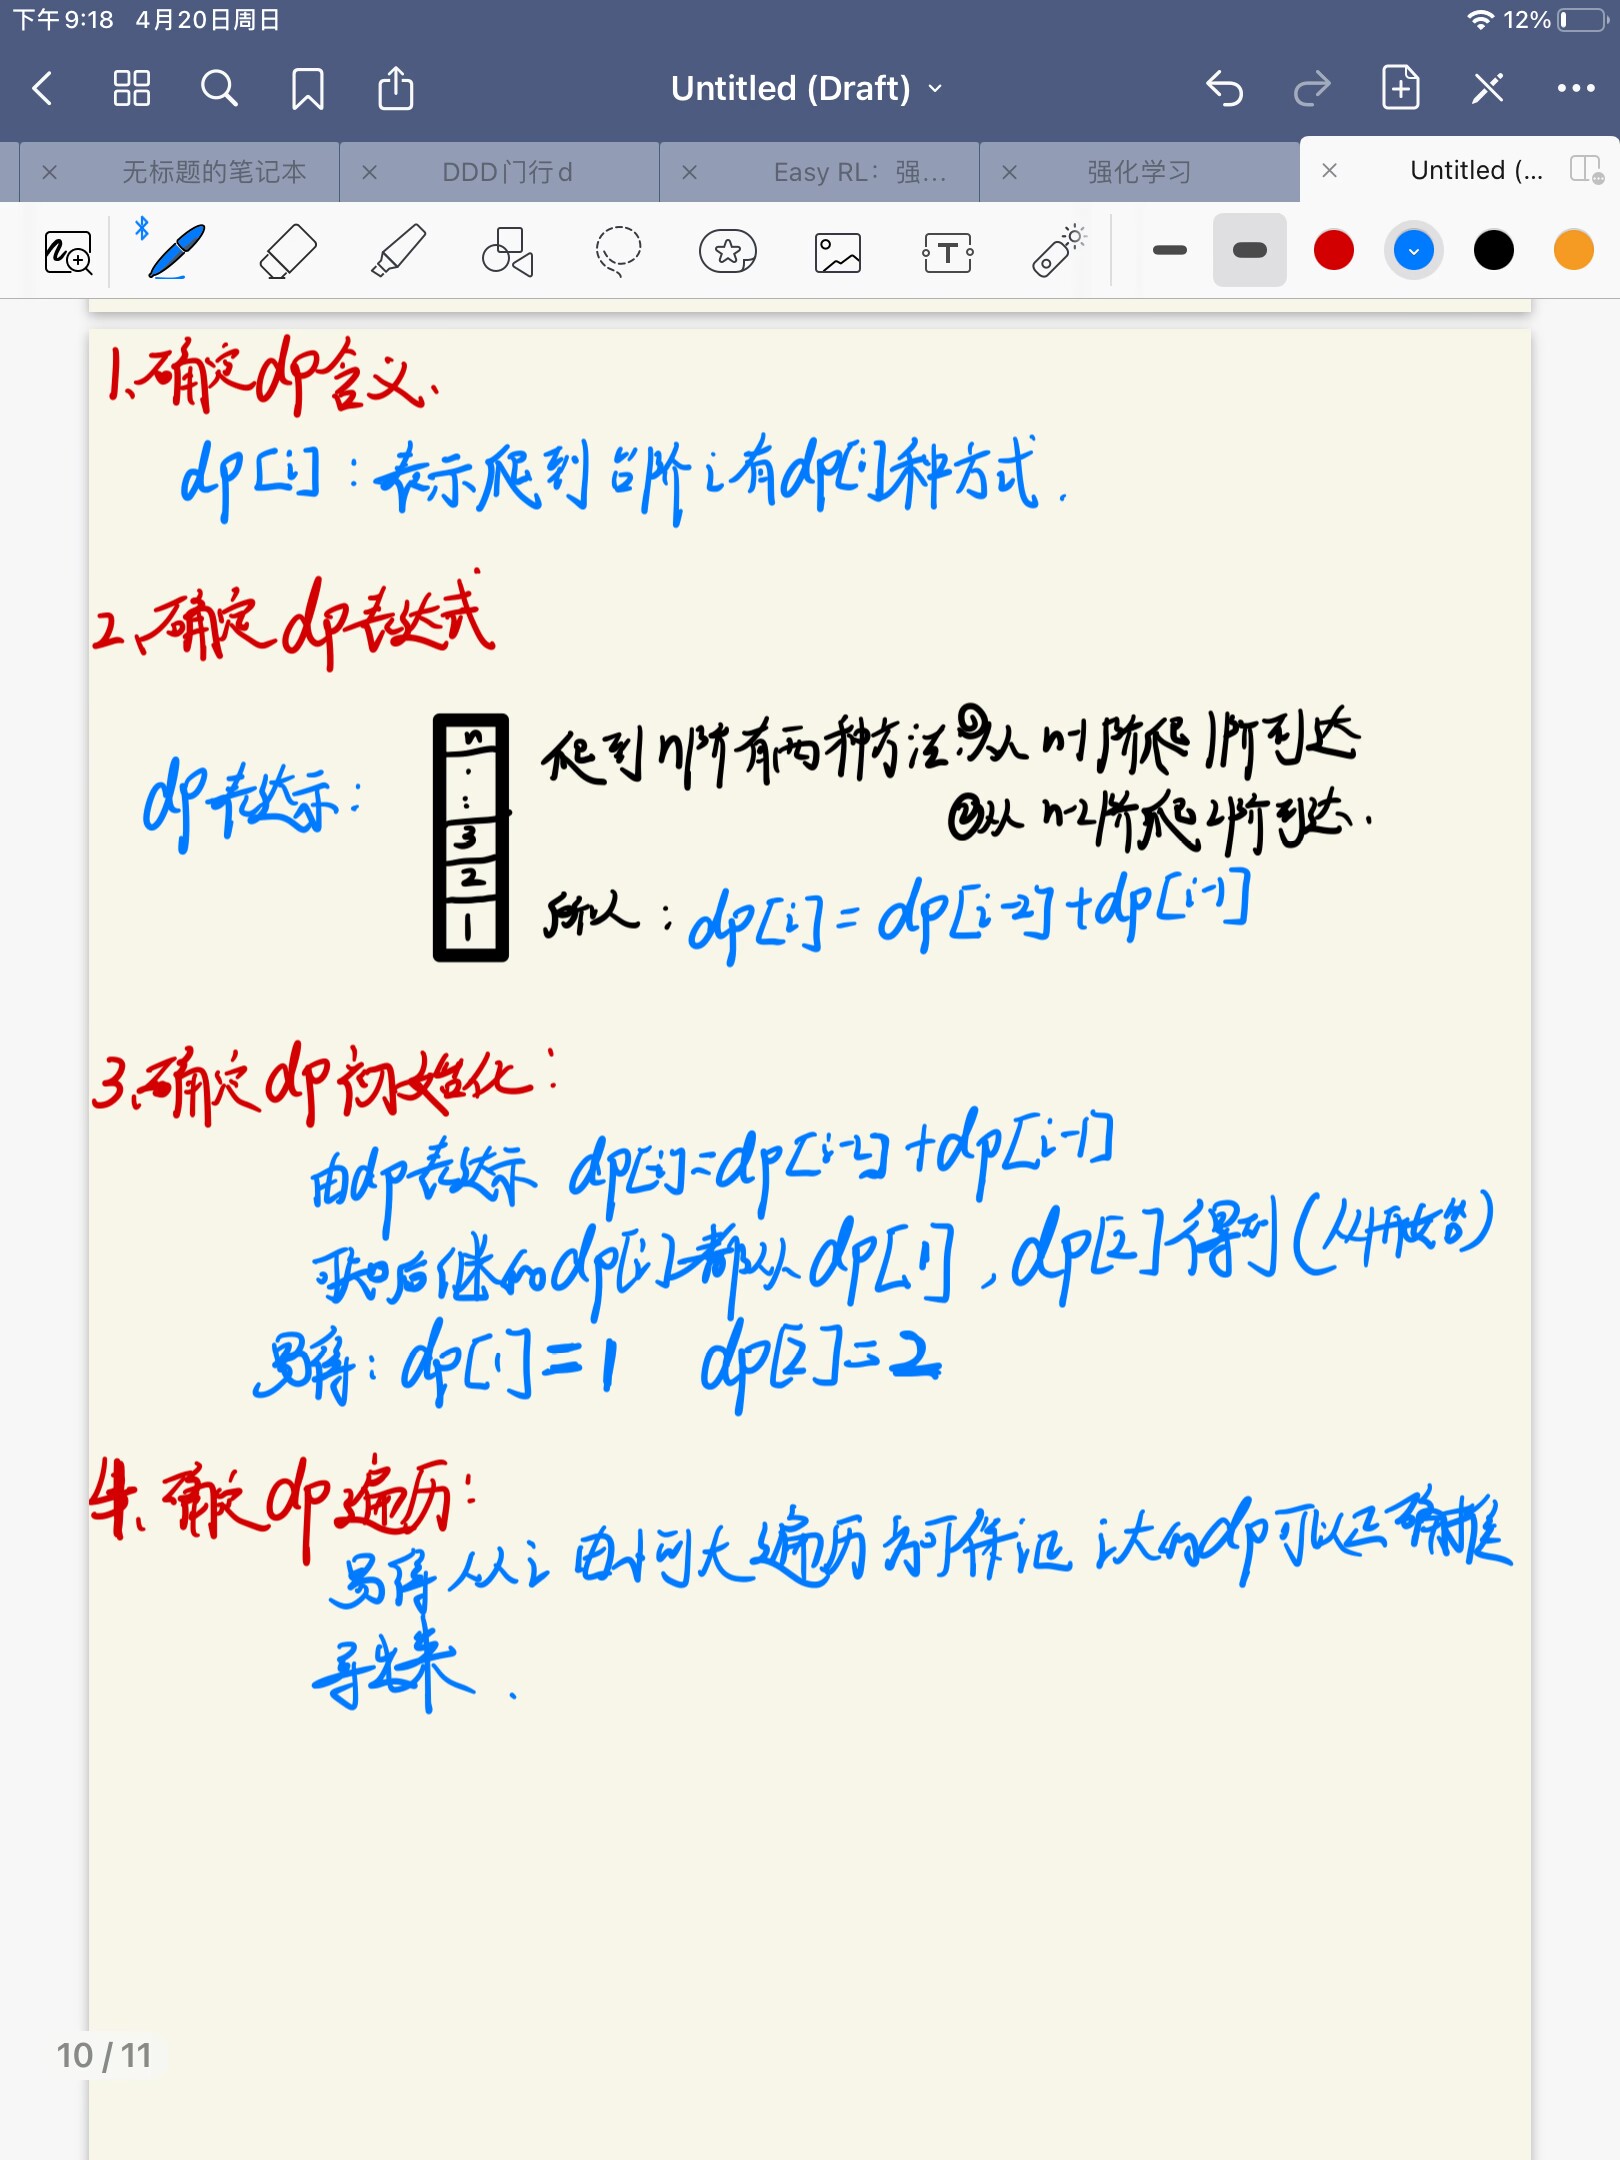 下午9:18 4月20日周日 12%
Untitled (Draft)
无标题的笔记本 DDD门行d Easy RL：强... 强化学习 Untitled (...
1、确定dp含义、
dp[i]：表示爬到台阶i有dp[i]种方式.
2、确定dp表达式
dp表达示：
n
3
2
1
爬到n阶有两种方法：①从n-1阶爬1阶到达
②从n-2阶爬2阶到达.
所以：dp[i]=dp[i-2]+dp[i-1]
3、确定dp初始化：
由dp表达示 dp[i]=dp[i-2]+dp[i-1]
可知后继的dp[i]都从dp[1],dp[2]得到(从1开始)
易得：dp[1]=1 dp[2]=2
4、确定dp遍历：
易得从i由小向大遍历才可保证i大的dp可以正确推
导出来.
10 / 11